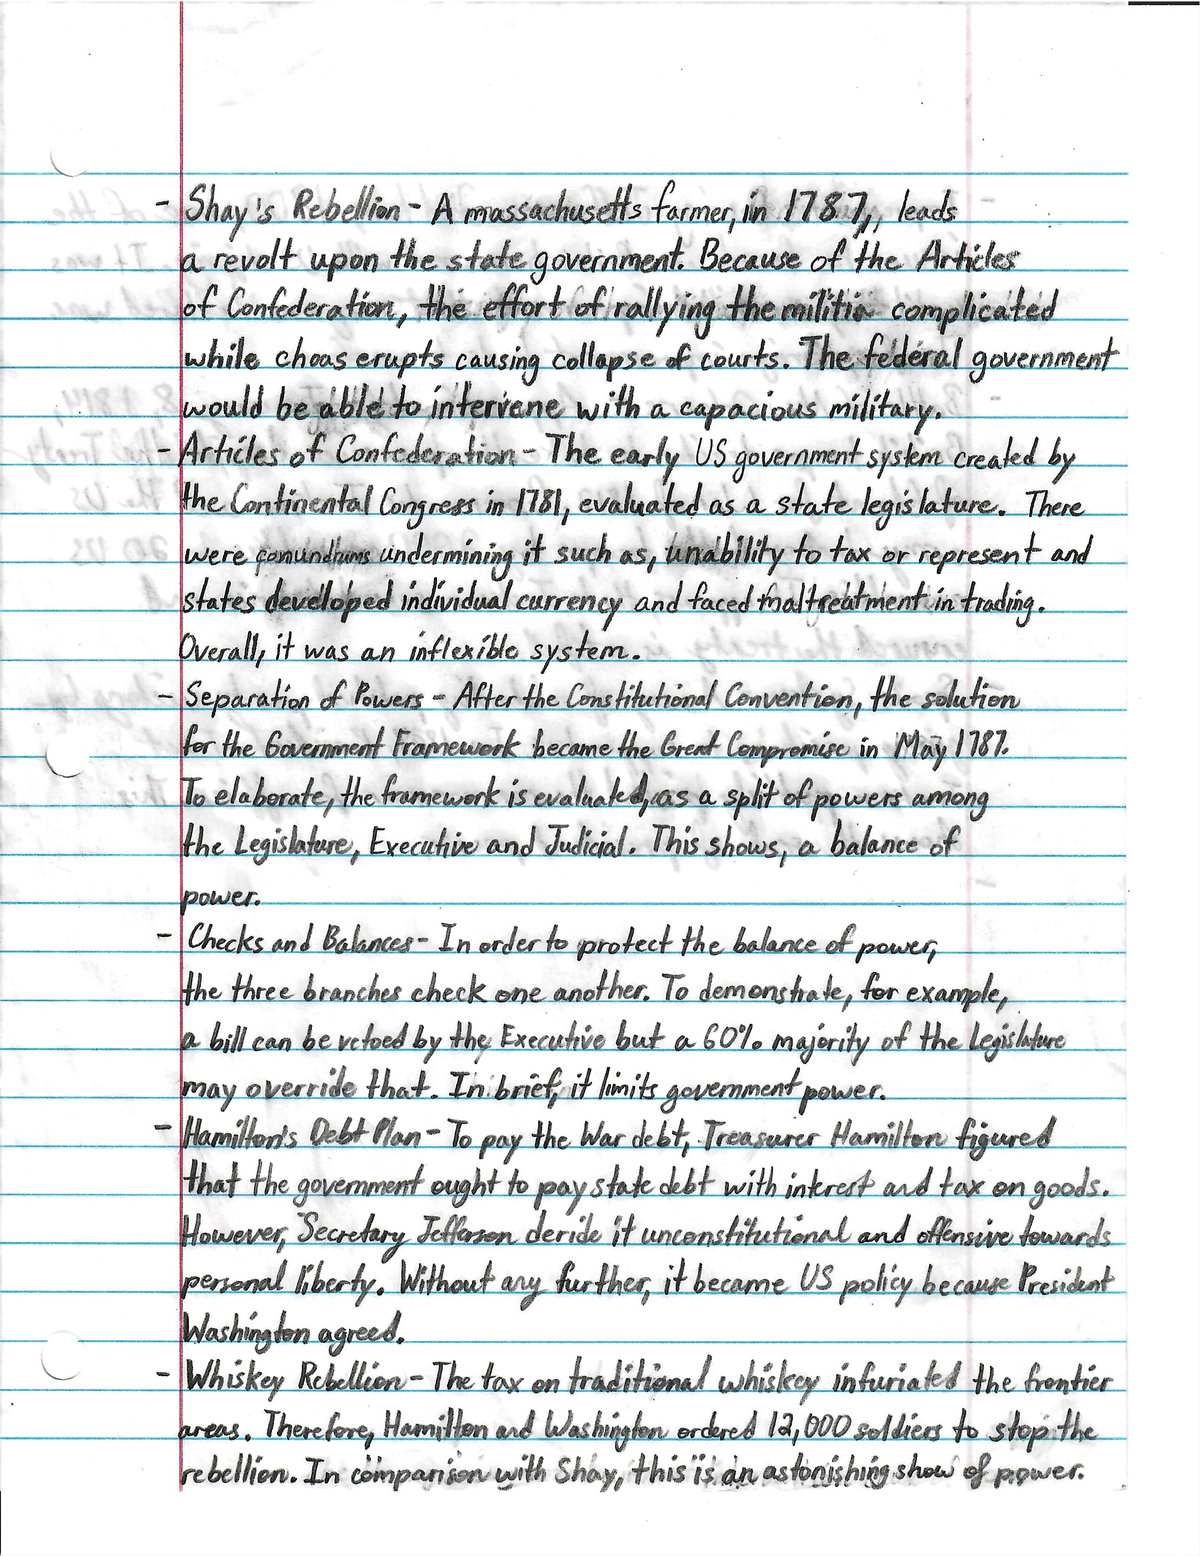 - Shay's Rebellion - A massachusetts farmer, in 1787, leads
a revolt upon the state government. Because of the Articles
of Confederation, the effort of rallying the militia complicated
while choas erupts causing collapse of courts. The federal government
would be able to intervene with a capacious military.
- Articles of Confederation - The early US government system created by
the Continental Congress in 1781, evaluated as a state legislature. There
were conundrums undermining it such as, unability to tax or represent and
states developed individual currency and faced maltreatment in trading.
Overall, it was an inflexible system.
- Separation of Powers - After the Constitutional Convention, the solution
for the Government Framework became the Great Compromise in May 1787.
To elaborate, the framework is evaluated, as a split of powers among
the Legislature, Executive and Judicial. This shows, a balance of
power.
- Checks and Balances - In order to protect the balance of power,
the three branches check one another. To demonstrate, for example,
a bill can be vetoed by the Executive but a 60% majority of the Legislature
may override that. In brief, it limits government power.
- Hamilton's Debt Plan - To pay the War debt, Treasurer Hamilton figured
that the government ought to pay state debt with interest and tax on goods.
However, Secretary Jefferson deride it unconstitutional and offensive towards
personal liberty. Without any further, it became US policy because President
Washington agreed.
- Whiskey Rebellion - The tax on traditional whiskey infuriated the frontier
areas. Therefore, Hamilton and Washington ordered 12,000 soldiers to stop the
rebellion. In comparison with Shay, this is an astonishing show of power.